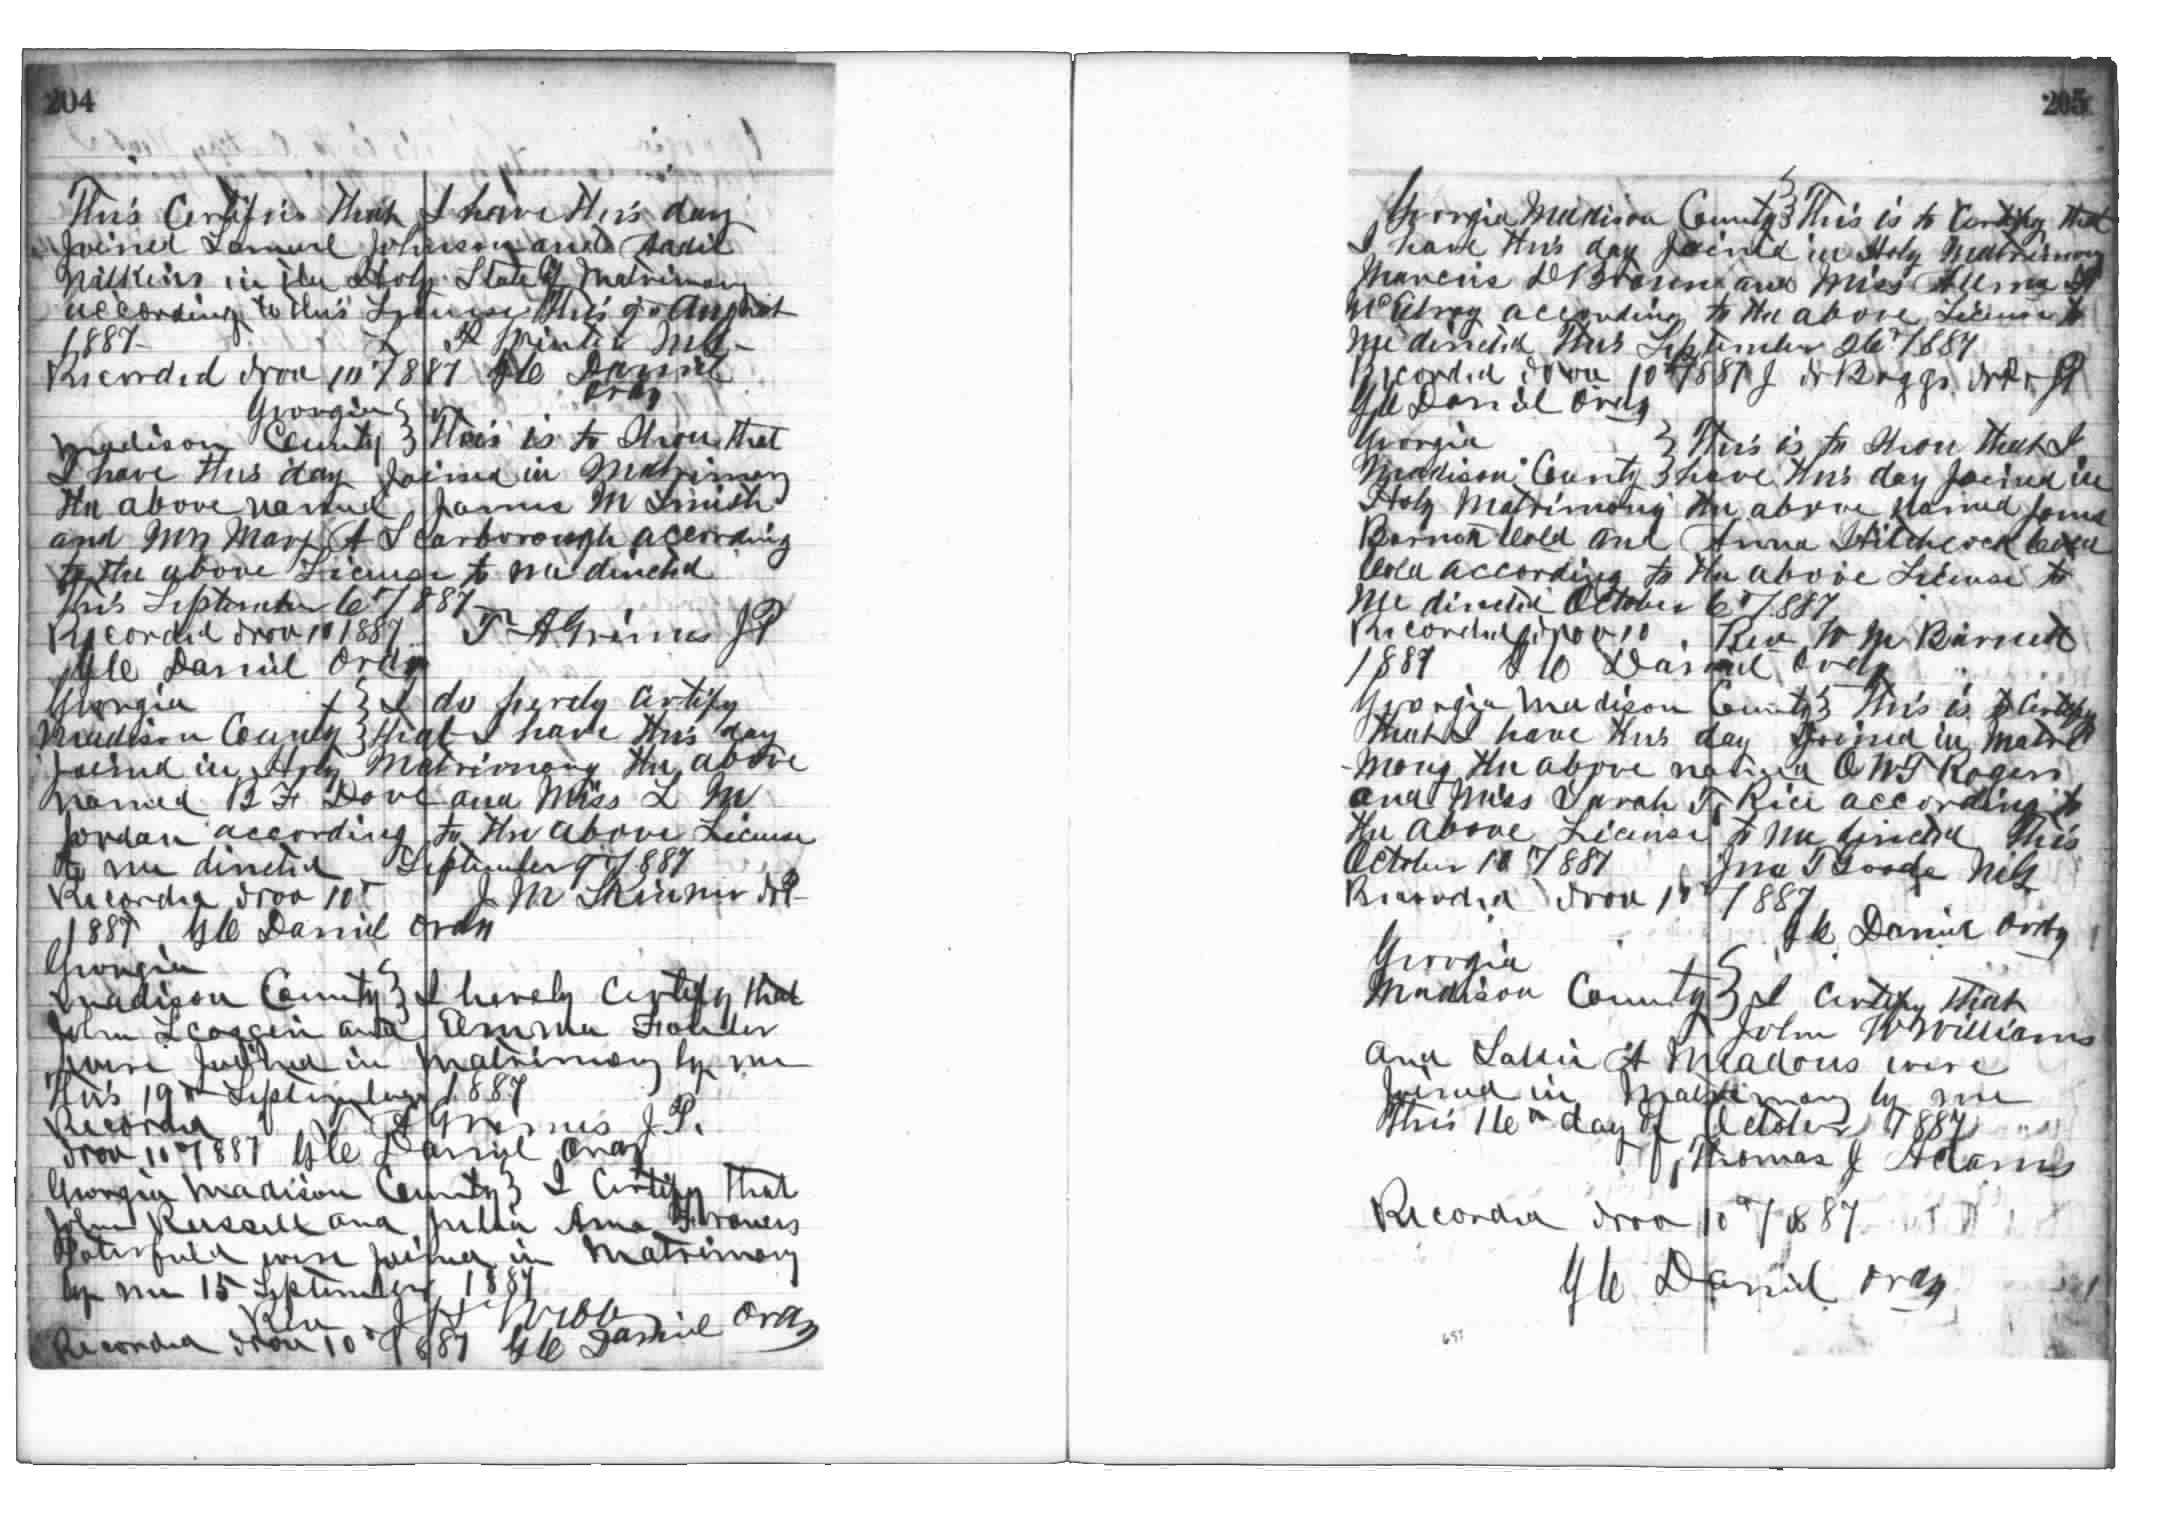 204
This Certifies that I have this day
Joined Samuel Johnson and Sadie
in the Holy State of Matrimony
according to this License this August
1887
Recorded Nov 10th 1887 G C Daniel
Ordy
Georgia
Madison County } This is to Show that
I have this day Joined in Matrimony
the above named James M Smith
and Mrs Mary A Scarborough according
to the above License to me directed
This September 6th 1887
Recorded Nov 10 1887 T A Grimes JP
G C Daniel Ordy
Georgia } I do hereby Certify
Madison County } that I have this day
Joined in Holy Matrimony the above
named B F Dove and Miss L M
Jordan according to the above License
to me directed September 9th 1887
Recorded Nov 10th J M Skinner
1887 G C Daniel Ordy
Georgia
Madison County } I hereby Certify that
John Scoggin and Emma
were Joined in Matrimony by me
this 19th September 1887
Recorded T A Grimes J.P.
Nov 10th 1887 G C Daniel Ordy
Georgia Madison County } I Certify that
John Russell and Julia Ann Frances
Porterfield were Joined in Matrimony
by me 15 September 1887
Rev
Recorded Nov 10th 1887 G C Daniel Ordy
205
Georgia Madison County } This is to Certify that
I have this day Joined in Holy Matrimony
Marcus D Brown and Miss
McElroy according to the above License to
me directed This September 26th 1887
Recorded Nov 10th 1887 J Boggs
G C Daniel Ordy
Georgia } This is to Show that I
Madison County } have this day Joined in
Holy Matrimony the above named
Cold and Anna Hitchcock
Cold according to the above License to
me directed October 6th 1887
Recorded Nov 10 Rev W M
1887 G C Daniel Ordy
Georgia Madison County } This is to Certify
that I have this day Joined in Matri
-mony the above named O W T Rogers
and Miss Sarah T Rice according to
the above License to me directed This
October 10th 1887 Jno T Goode
Recorded Nov 10th 1887
G C Daniel Ordy
Georgia
Madison County } I Certify that
John W Williams
and A Meadows were
Joined in Matrimony by me
this 16th day of October 1887
Thomas J Adams
Recorded Nov 10th 1887
G C Daniel Ordy